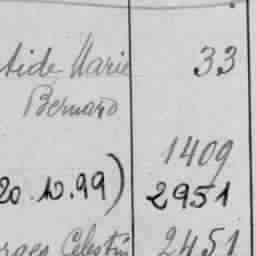 tide Marie 33
Bernard
1409
20.10.99) 2951
rges Celestin 2451